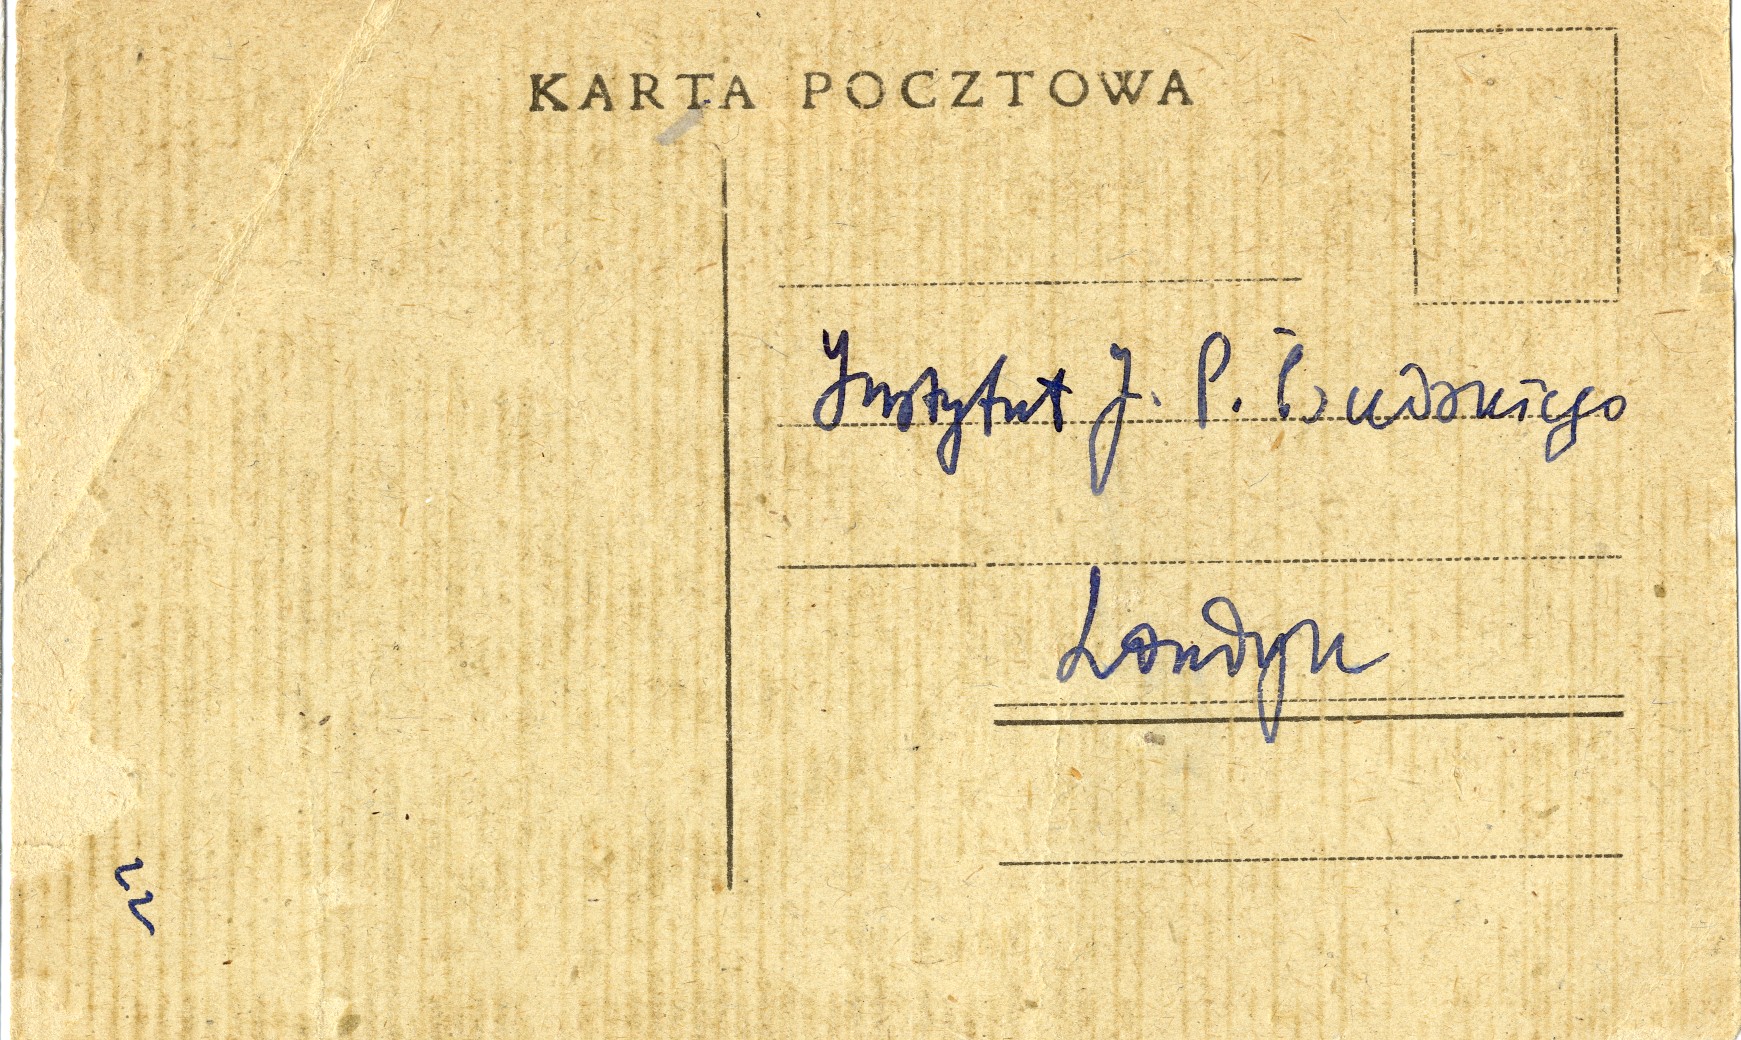 KARTA POCZTOWA
Instytut J. P.
Londyn
22